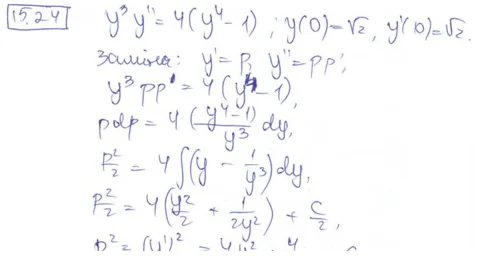 15.24 y³y'' = 4(y⁴-1); y(0)=√2, y'(0)=√2.
Заміна: y'=p, y''=pp',
y³pp' = 4(y⁴-1),
pdp = 4 (y⁴-1)/y³ dy,
p²/2 = 4∫(y - 1/y³)dy,
p²/2 = 4(y²/2 + 1/2y²) + c/2,
p² = (y')² = 4y² 4